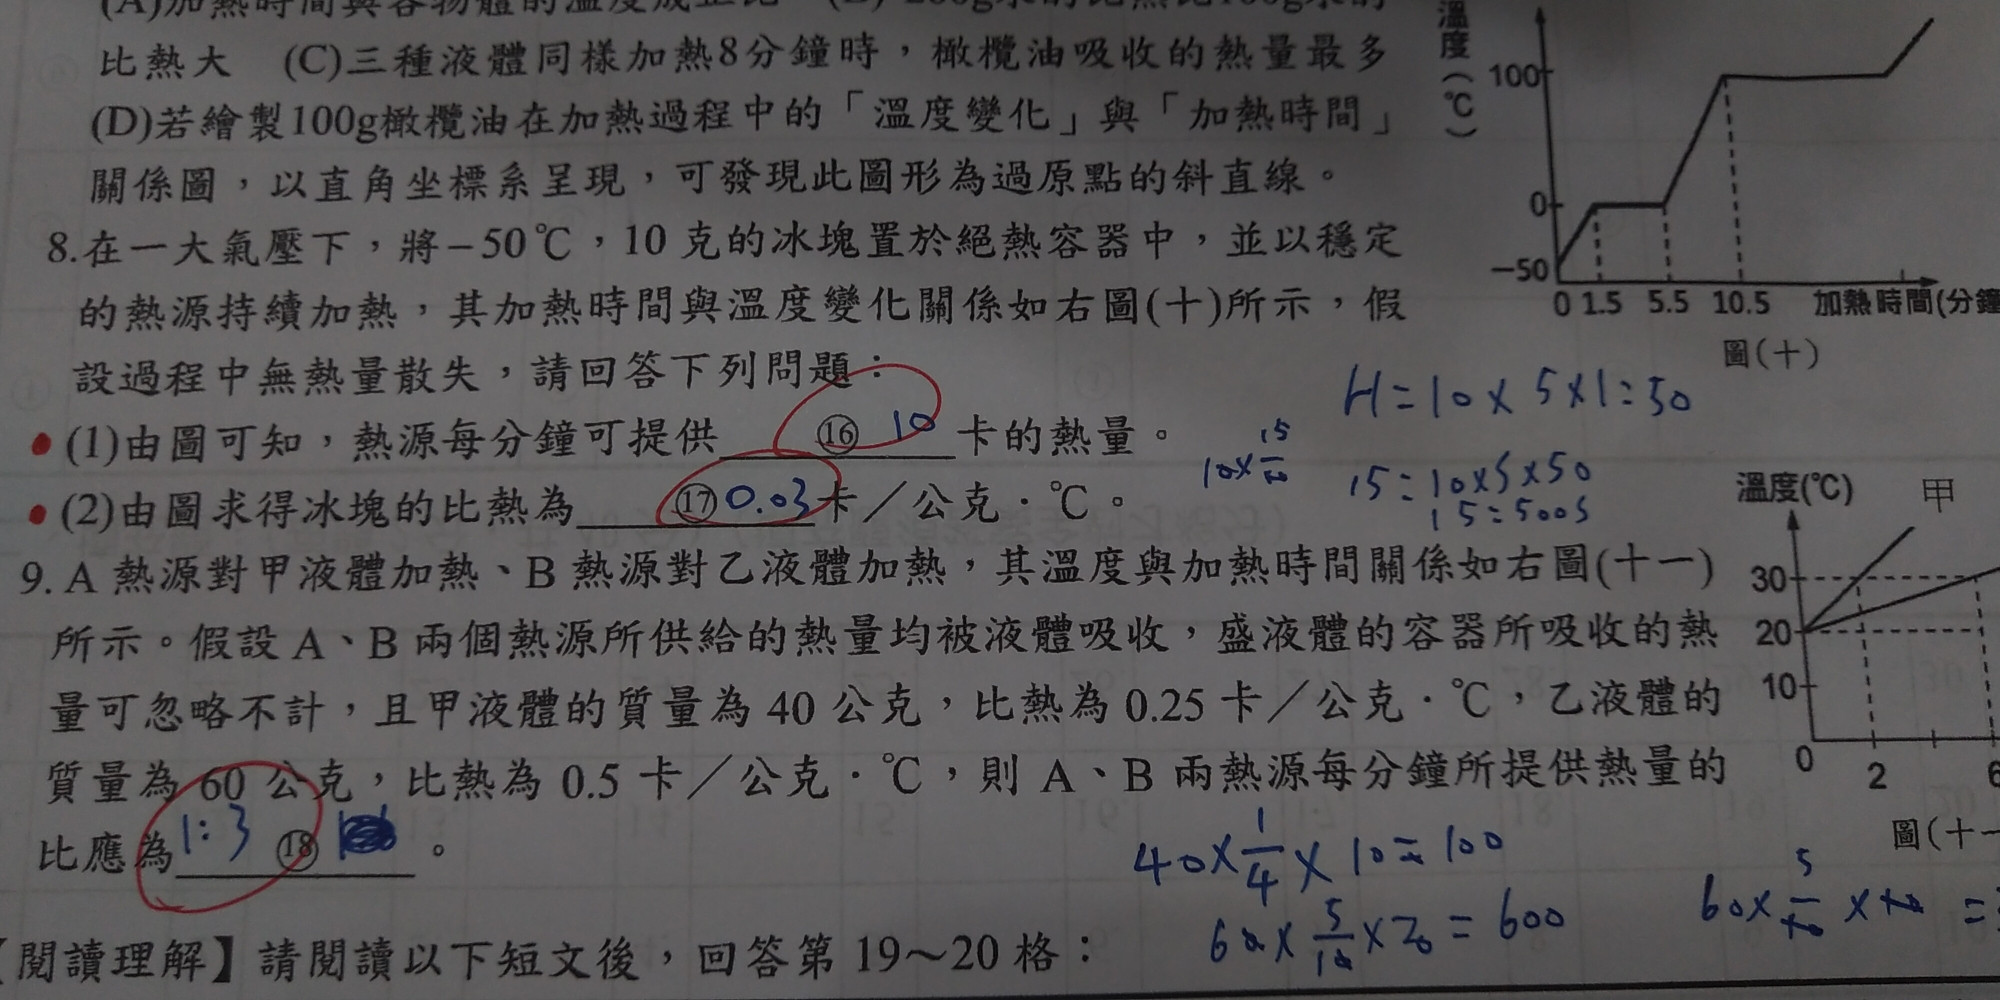 (A)加熱時間與各物體的溫度成正比
比熱大 (C)三種液體同樣加熱8分鐘時，橄欖油吸收的熱量最多
(D)若繪製100g橄欖油在加熱過程中的「溫度變化」與「加熱時間」
關係圖，以直角坐標系呈現，可發現此圖形為過原點的斜直線。
溫度(℃)
100
0
-50
0 1.5 5.5 10.5 加熱時間(分鐘
圖(十)
8.在一大氣壓下，將−50℃，10克的冰塊置於絕熱容器中，並以穩定
的熱源持續加熱，其加熱時間與溫度變化關係如右圖(十)所示，假
設過程中無熱量散失，請回答下列問題：
(1)由圖可知，熱源每分鐘可提供 ⑯ 10 卡的熱量。
(2)由圖求得冰塊的比熱為 ⑰ 0.03 卡／公克．℃。
H=10×5×1=50
15=10×5×50
15=500S
9. A 熱源對甲液體加熱、B 熱源對乙液體加熱，其溫度與加熱時間關係如右圖(十一)
所示。假設 A、B 兩個熱源所供給的熱量均被液體吸收，盛液體的容器所吸收的熱
量可忽略不計，且甲液體的質量為 40 公克，比熱為 0.25 卡／公克．℃，乙液體的
質量為 60 公克，比熱為 0.5 卡／公克．℃，則 A、B 兩熱源每分鐘所提供熱量的
比應為 1:3 ⑱ 。
溫度(℃) 甲
30
20
10
0 2 6
圖(十一
40×1/4×10=100
60×5/10×20=600
【閱讀理解】請閱讀以下短文後，回答第 19～20 格：